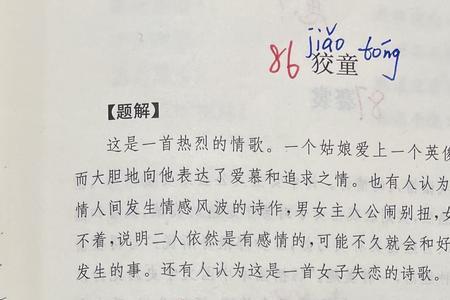 jiǎo tóng
86 狡童
【题解】
这是一首热烈的情歌。一个姑娘爱上一个英俊
而大胆地向他表达了爱慕和追求之情。也有人认为
情人间发生情感风波的诗作，男女主人公闹别扭，女
不着，说明二人依然是有感情的，可能不久就会和好
发生的事。还有人认为这是一首女子失恋的诗歌。